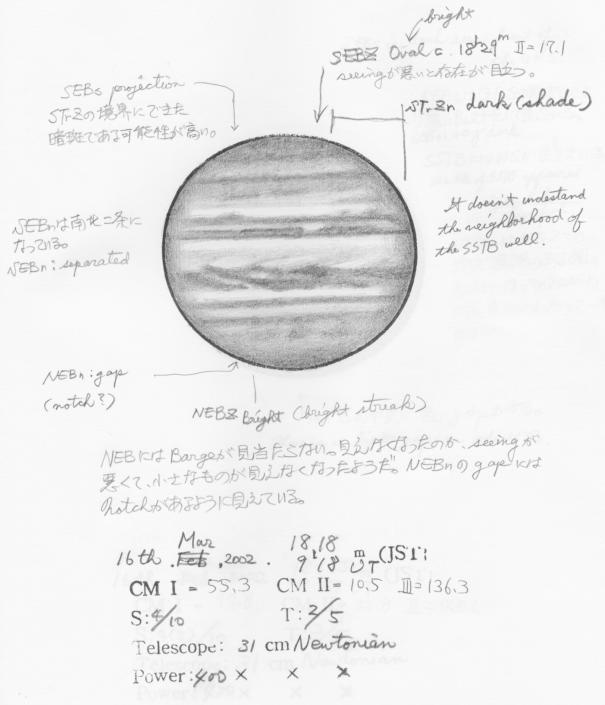 bright
SEBZ Oval c. 18h29m II=17.1
seeingが悪いと存在が目立つ。
SEBs projection
STrZの境界にできた
暗斑である可能性が高い。
STrZn dark (shade)
It doesn't undestand
the neighborhood of
the SSTB well.
SEBnは南北二条に
なっている。
SEBn : separated
NEBn : gap
(notch?)
NEBZ Bright (bright streak)
NEBにはBargeが見当たらない。見えなくなったのか、seeingが
悪くて、小さなものが見えなくなったようだ。NEBnのgapには
notchがあるように見えている。
16th Mar Feb, 2002. 18h18m (JST)
9h18 UT
CM I = 55.3 CM II = 10.5 III = 136.3
S: 4/10 T: 2/5
Telescope: 31 cm Newtonian
Power: 400 × × ×